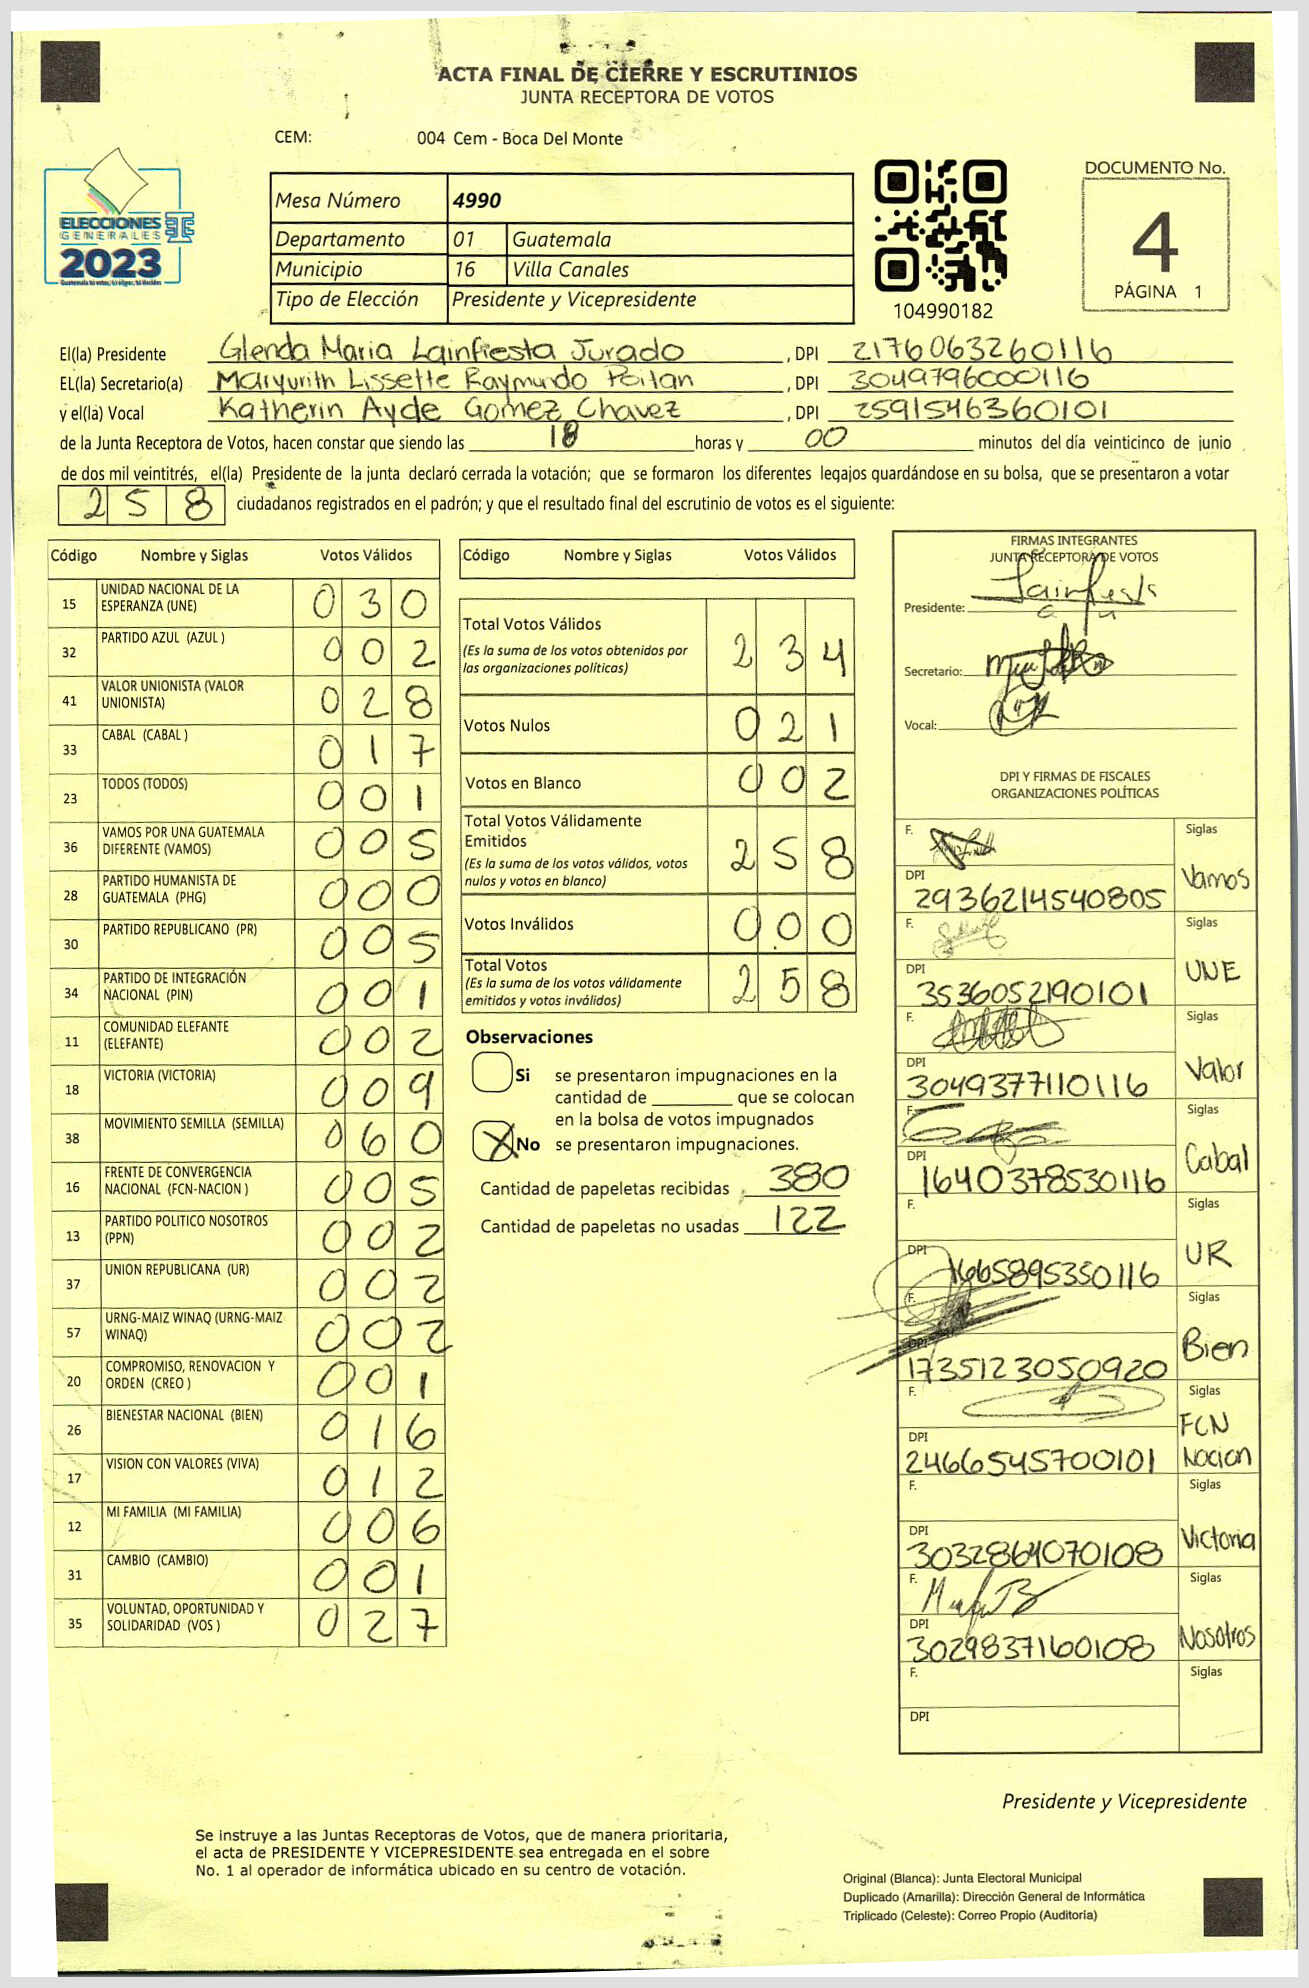 ACTA FINAL DE CIERRE Y ESCRUTINIOS
JUNTA RECEPTORA DE VOTOS
CEM: 004 Cem - Boca Del Monte
ELECCIONES
GENERALES
2023
Mesa Número 4990
Departamento 01 Guatemala
Municipio 16 Villa Canales
Tipo de Elección Presidente y Vicepresidente
104990182
DOCUMENTO No.
4
PÁGINA 1
El(la) Presidente Glenda Maria Lainfiesta Jurado, DPI 2176063260116
EL(la) Secretario(a) Maryurith Lissette Raymundo, DPI 3049796000116
y el(la) Vocal Katherin Ayde Gomez Chavez, DPI 2591546360101
de la Junta Receptora de Votos, hacen constar que siendo las 18 horas y 00 minutos del día veinticinco de junio
de dos mil veintitrés, el(la) Presidente de la junta declaró cerrada la votación; que se formaron los diferentes legajos guardándose en su bolsa, que se presentaron a votar
258 ciudadanos registrados en el padrón; y que el resultado final del escrutinio de votos es el siguiente:
Código Nombre y Siglas Votos Válidos
15 UNIDAD NACIONAL DE LA ESPERANZA (UNE) 030
32 PARTIDO AZUL (AZUL ) 002
41 VALOR UNIONISTA (VALOR UNIONISTA) 028
33 CABAL (CABAL ) 017
23 TODOS (TODOS) 001
36 VAMOS POR UNA GUATEMALA DIFERENTE (VAMOS) 005
28 PARTIDO HUMANISTA DE GUATEMALA (PHG) 000
30 PARTIDO REPUBLICANO (PR) 005
34 PARTIDO DE INTEGRACIÓN NACIONAL (PIN) 001
11 COMUNIDAD ELEFANTE (ELEFANTE) 002
18 VICTORIA (VICTORIA) 009
38 MOVIMIENTO SEMILLA (SEMILLA) 060
16 FRENTE DE CONVERGENCIA NACIONAL (FCN-NACION ) 005
13 PARTIDO POLITICO NOSOTROS (PPN) 002
37 UNION REPUBLICANA (UR) 002
57 URNG-MAIZ WINAQ (URNG-MAIZ WINAQ) 002
20 COMPROMISO, RENOVACION Y ORDEN (CREO ) 001
26 BIENESTAR NACIONAL (BIEN) 016
17 VISION CON VALORES (VIVA) 012
12 MI FAMILIA (MI FAMILIA) 006
31 CAMBIO (CAMBIO) 001
35 VOLUNTAD, OPORTUNIDAD Y SOLIDARIDAD (VOS ) 027
Código Nombre y Siglas Votos Válidos
Total Votos Válidos 234
(Es la suma de los votos obtenidos por
las organizaciones políticas)
Votos Nulos 021
Votos en Blanco 002
Total Votos Válidamente
Emitidos 258
(Es la suma de los votos válidos, votos
nulos y votos en blanco)
Votos Inválidos 000
Total Votos 258
(Es la suma de los votos válidamente
emitidos y votos inválidos)
Observaciones
Si se presentaron impugnaciones en la
cantidad de ________ que se colocan
en la bolsa de votos impugnados
X No se presentaron impugnaciones.
Cantidad de papeletas recibidas 380
Cantidad de papeletas no usadas 122
FIRMAS INTEGRANTES
JUNTA RECEPTORA DE VOTOS
Presidente:
Secretario:
Vocal:
DPI Y FIRMAS DE FISCALES
ORGANIZACIONES POLÍTICAS
F. Siglas
DPI 2936214540805 Vamos
F. Siglas
DPI 3536052190101 UNE
F. Siglas
DPI 3049377110116 Valor
F. Siglas
DPI 1640378530116 Cabal
F. Siglas
DPI 1665895350116 UR
F. Siglas
DPI 1735123050920 Bien
F. Siglas
DPI 2466545700101 FCN Nacion
F. Siglas
DPI 3032864070108 Victoria
F. Siglas
DPI 3029837160108 Nosotros
F. Siglas
DPI
Presidente y Vicepresidente
Se instruye a las Juntas Receptoras de Votos, que de manera prioritaria,
el acta de PRESIDENTE Y VICEPRESIDENTE sea entregada en el sobre
No. 1 al operador de informática ubicado en su centro de votación.
Original (Blanca): Junta Electoral Municipal
Duplicado (Amarilla): Dirección General de Informática
Triplicado (Celeste): Correo Propio (Auditoría)